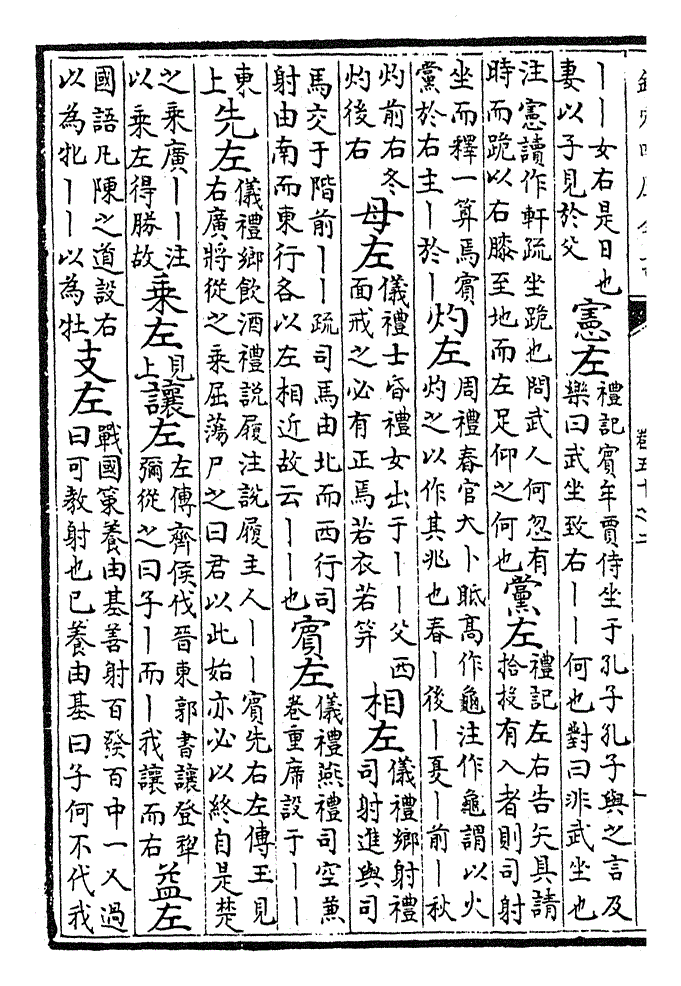 ｜｜女右是日也妻以子見於父 憲左 禮記賓牟賈侍坐于孔子孔子與之言及樂曰武坐致右｜｜何也對曰非武坐也
注憲讀作軒疏坐跪也問武人何忽有時而跪以右膝至地而左足仰之何也 黨左 禮記左右告矢具請拾投有入者則司射
坐而釋一算焉賓黨於右主｜於｜ 灼左 周禮春官大卜眡高作龜注作龜謂以火灼之以作其兆也春｜後｜夏｜前｜秋
灼前右冬灼後右 母左 儀禮士昏禮女出于｜｜父西面戒之必有正焉若衣若笄 相左 儀禮鄉射禮司射進與司
馬交于階前｜｜疏司馬由北而西行司射由南而東行各以左相近故云｜｜也 賓左 儀禮燕禮司空兼卷重席設于｜｜
東上 先左 儀禮鄉飲酒禮說屨注說屨主人｜｜賓先右左傳王見右廣將從之乘屈蕩尸之曰君以此始亦必以終自是楚
之乘廣｜｜注以乘左得勝故 乘左 見上 讓左 左傳齊侯伐晉東郭書讓登犂彌從之曰子｜而｜我讓而右 益左
國語凡陳之道設右以為牝｜｜以為牡 支左 戰國策養由基善射百發百中一人過曰可教射也已養由基曰子何不代我